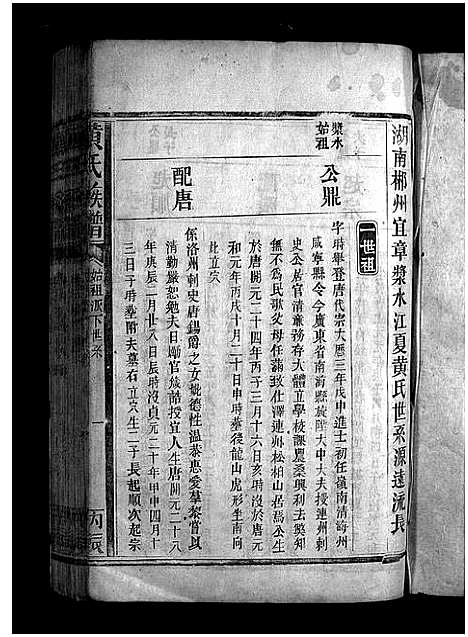 湖南郴州宜章漿水江夏黄氏世系源遠流長
一世祖
漿水始祖
公鼎
字時舉登唐代宗大厯三年戊申進士初任嶺南清海州
咸寧縣令今廣東省南海縣旋陞大中大夫授連州刺
史公居官清廉務存大體立學校課農桑興利去獘知
無不為民歌父母任滿致仕澤連州松柏山居焉公生
於唐開元二十四年丙子三月十六日亥時没於唐元
和元年丙戌十月二十日申時塟後龍山虎形坐南向
北立穴
配唐
係洛州刺史唐錫爵之女妣德性温恭惠愛羣黎嘗以
清勤嚴恕勉夫日勵官族酷授宜人生唐開元二十八
年庚辰二月廿八日辰時没貞元二十年甲申四月十
三日子時塟附夫墓右立穴生二子長起順次起宗
黄氏族譜
始祖派下世系
一